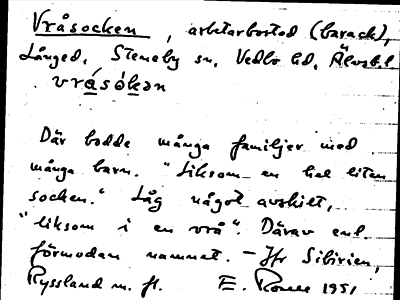 Vråsocken, arbetarbostad (barack),
Långed, Steneby sn, Vedbo hd, Älvsb.l.
vrásókən
Där bodde många familjer med
många barn. "Liksom en hel liten
socken." Låg något avskilt,
"liksom i en vrå". Därav enl.
förmodan namnet. — Jfr Sibirien,
Ryssland m. fl. E. 1951